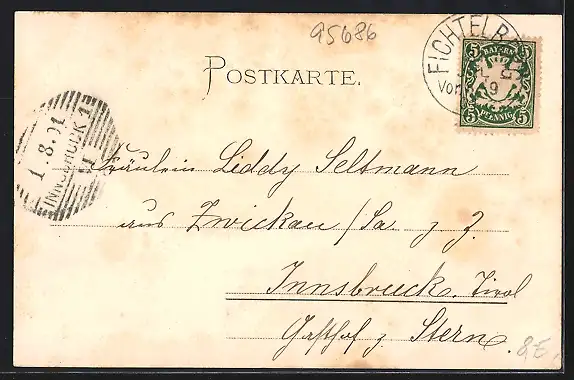 95686
POSTKARTE.
FICHTELB
Vor 9
5 BAYERN 5
5 PFENNIG 5
1.8.01
INNSBRUCK 1
Fräulein Liddy Seltmann
aus Zwickau/Sa. z. Z.
Innsbruck. Tirol
Gasthof z. Stern.